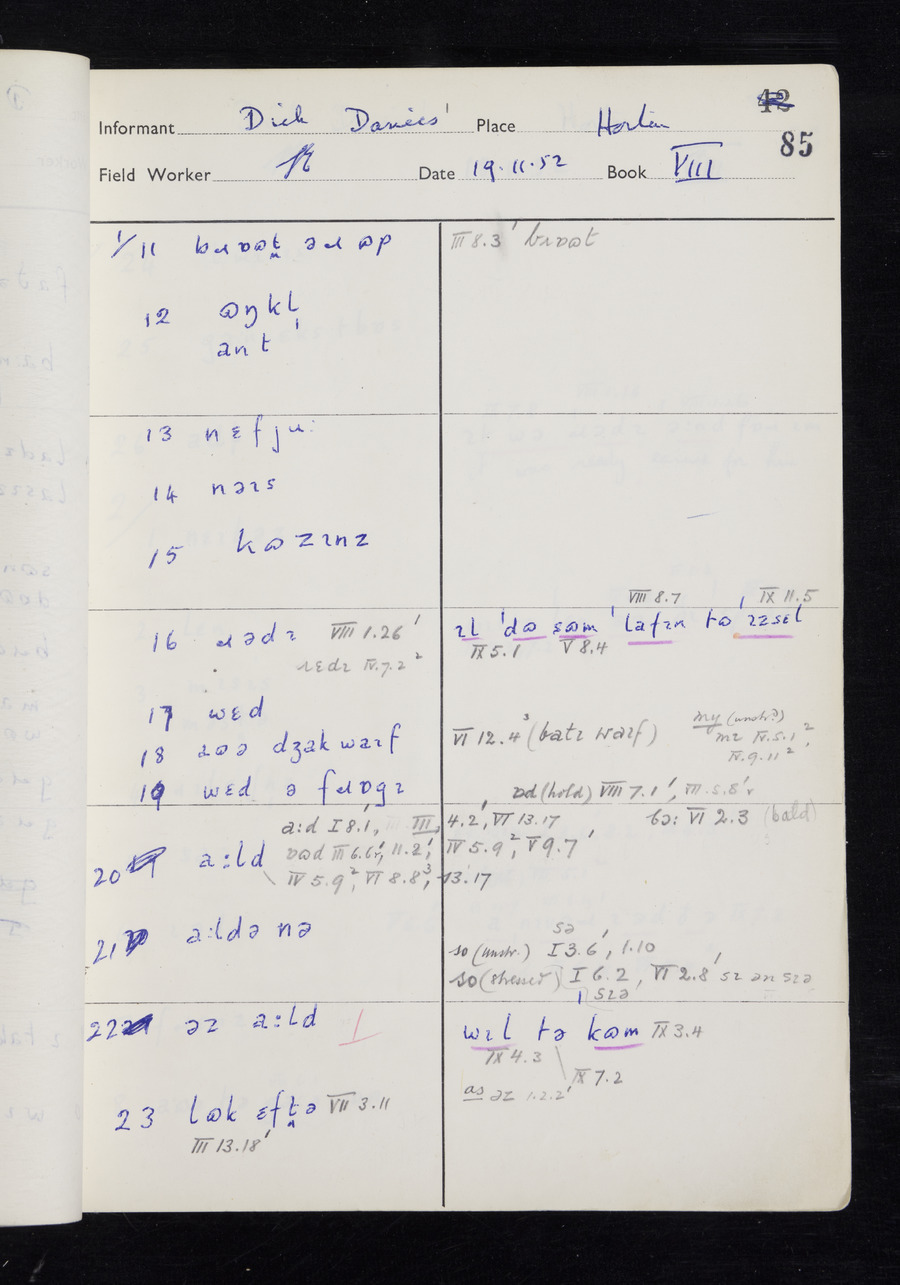 42
85
Informant Dick Davies' Place Horton
Field Worker Date 19.11.52 Book VIII
1/11
III 8.3'
12 ɷŋkl
ant
13 nɛfju:
14 nəɪs
15 kɷzɪnz
VIII 8.7 IX 11.5
16 ɹədɪ VIII 1.26'
ɪl 'dɷ sɷm 'lafɪn tɷ ɪzsɛl
IX 5.1 V 8.4
ɹɛdɪ IV.7.2²
17 wɛd
my (unstr.)
mɪ IV.5.1²
IV.9.11²
VI 12.4³ (batɪ waɪf)
18 dʒak waɪf
19 wɛd ə fɹɒgɪ
ɒd (hold) VIII 7.1', VII.5.8'
a:d I 8.1', III 4.2', VI 13.17
bɔ: VI 2.3 (bald)
20 a:ld
ɒɷd III 6.6, 11.2', IV 5.9², V 9.7'
IV 5.9², VI 8.8³, 13.17
21 a:ldə nə
sə
so (unstr.) I 3.6', 1.10
so (stressed) I 6.2, VI 2.8' sɪ ən sɪə
sɪə
22 əz a:ld
wɪl tə kɷm IX 3.4
IX 4.3
IX 7.2
as əz 1.2.2'
23 lɷk ɛftə VII 3.11
III 13.18'